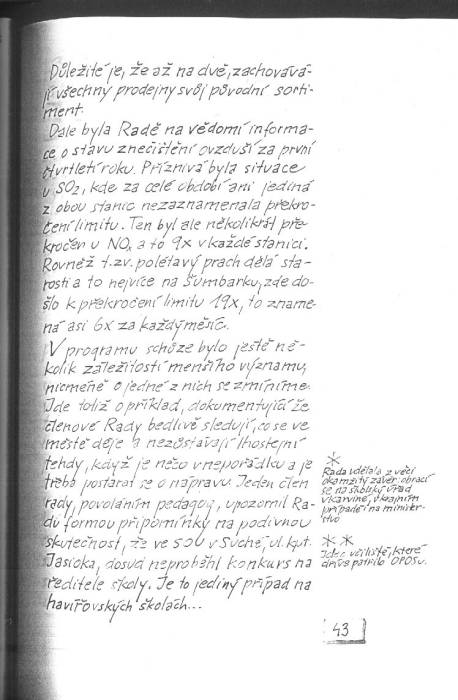 Důležité je, že až na dvě, zachováva-
jí všechny prodejny svůj původní sorti-
ment.
Dále byla Radě na vědomí informa-
ce o stavu znečištění ovzduší za první
čtvrtletí roku. Příznivá byla situace
u SO₂, kde za celé období ani jediná
z obou stanic nezaznamenala překro-
čení limitu. Ten byl ale několikrát pře-
kročen u NOₓ a to 9x v každé stanici.
Rovněž t.zv. polétavý prach dělá sta-
rosti a to nejvíce na Šumbarku, zde do-
šlo k překročení limitu 19x, to zname-
ná asi 6x za každý měsíc.
V programu schůze bylo ještě ně-
kolik záležitostí menšího významu,
nicméně o jedné z nich se zmíníme.
Jde totiž o příklad, dokumentující že
členové Rady bedlivě sledují, co se ve
městě děje a nezůstávají lhostejní
tehdy, když je něco v nepořádku a je
třeba postarat se o nápravu. Jeden člen
rady, povoláním pedagog, upozornil Ra-
du formou připomínky na podivnou
skutečnost, že ve SOU v Suché, ul. kpt.
Jasioka, dosud neproběhl konkurs na
ředitele školy. Je to jediný případ na
havířovských školách...
*
Rada udělala z věci
okamžitý závěr: obrací
se na školský úřad
v Karviné, v krajním
případě na minister-
stvo
* *
Jde o učiliště, které
dříve patřilo OPOSu.
43